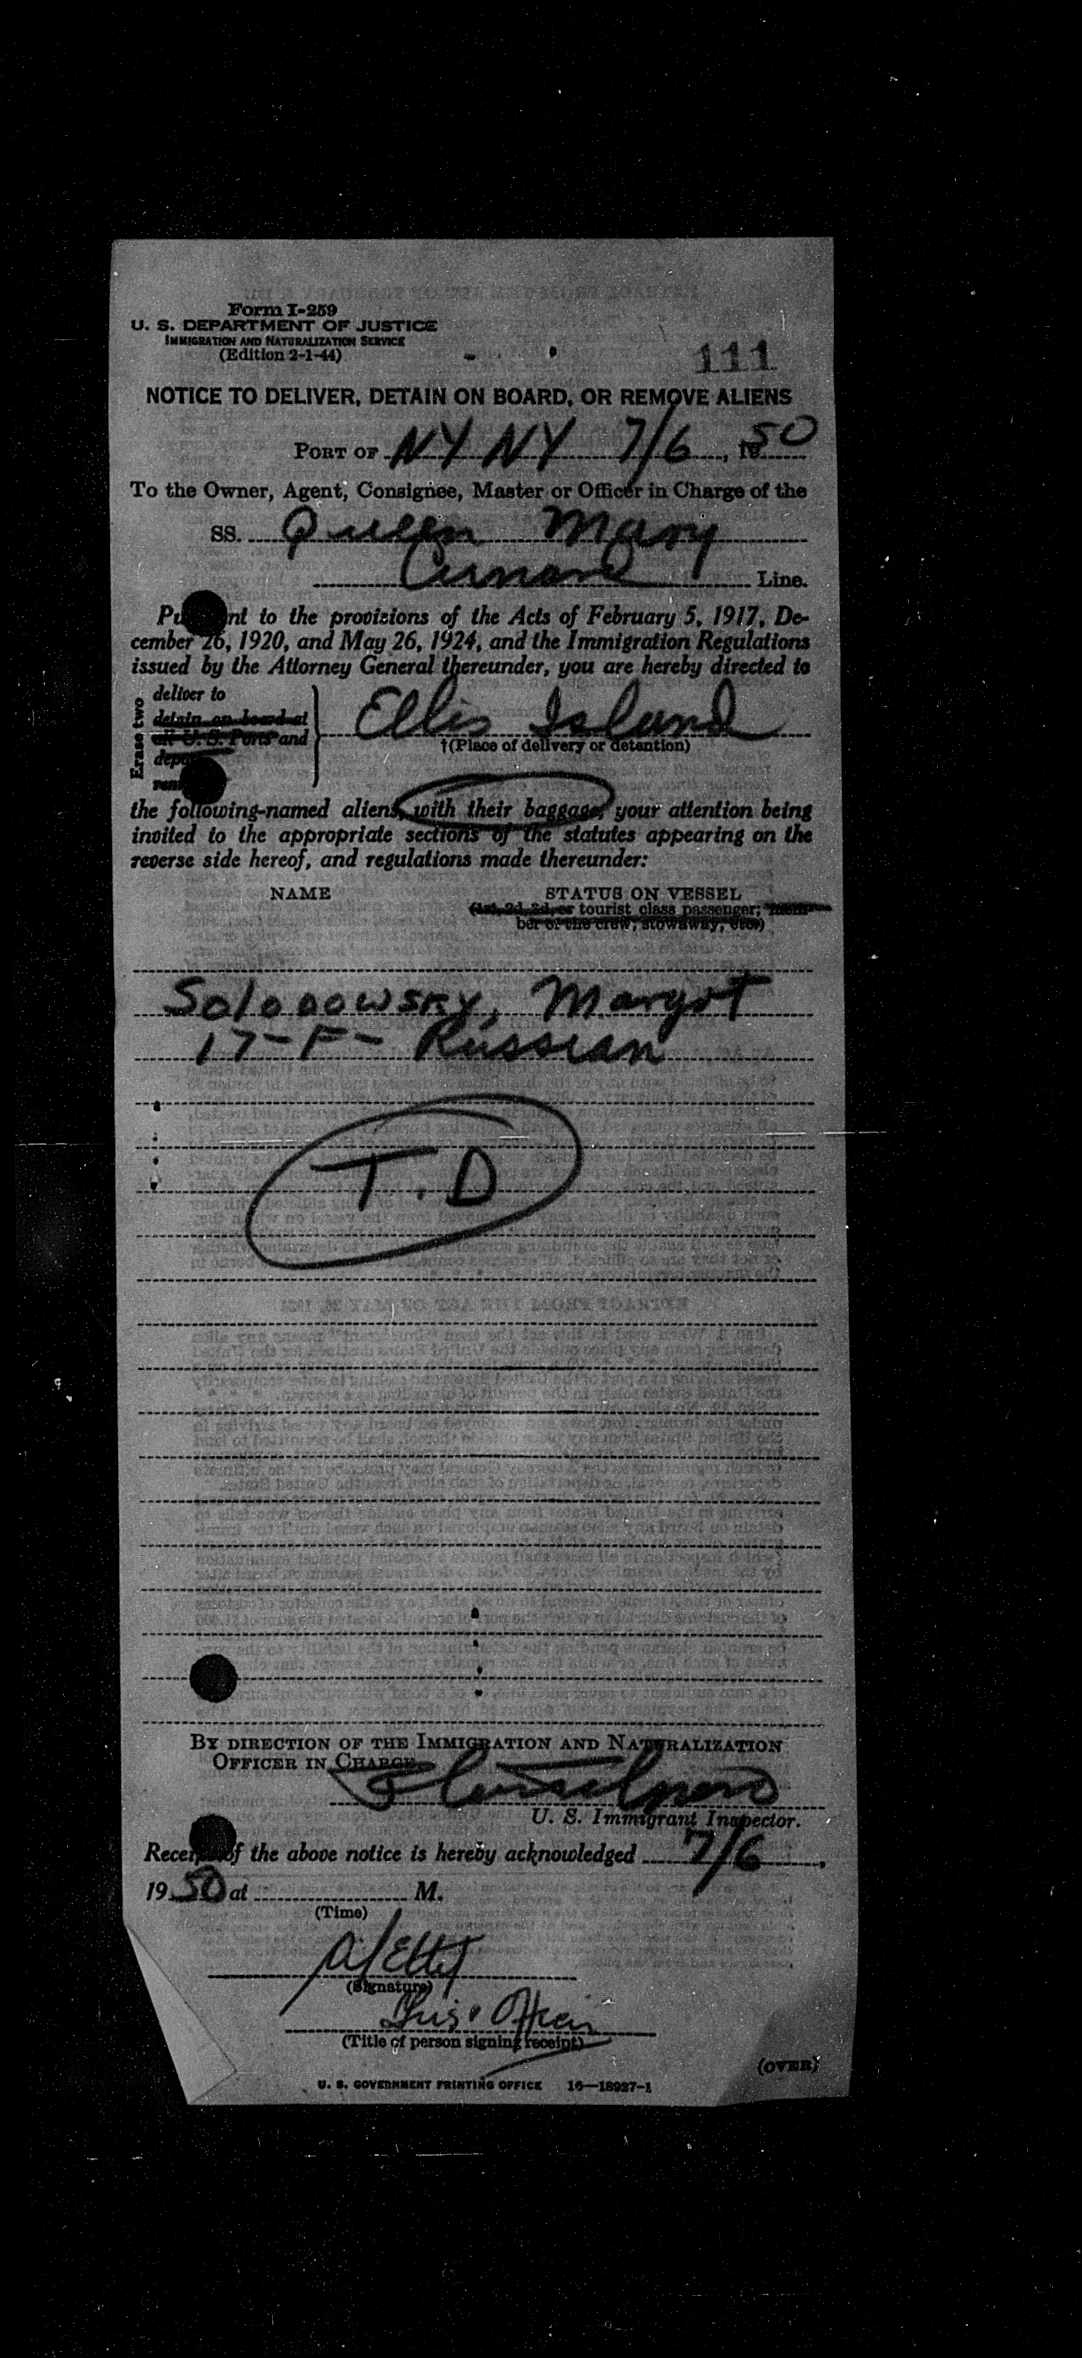 Form I-259
U. S. DEPARTMENT OF JUSTICE
IMMIGRATION AND NATURALIZATION SERVICE
(Edition 2-1-44)
111
NOTICE TO DELIVER, DETAIN ON BOARD, OR REMOVE ALIENS
PORT OF NY NY 7/6, 1950
To the Owner, Agent, Consignee, Master or Officer in Charge of the
SS. Queen Mary
Cunard Line.
Pu nt to the provisions of the Acts of February 5, 1917, De-
cember 26, 1920, and May 26, 1924, and the Immigration Regulations
issued by the Attorney General thereunder, you are hereby directed to
Erase two
deliver to
detain on board at
all U. S. Ports and
Ellis Island
†(Place of delivery or detention)
the following-named aliens, with their baggage, your attention being
invited to the appropriate sections of the statutes appearing on the
reverse side hereof, and regulations made thereunder:
NAME STATUS ON VESSEL
(1st, 2d, 3d, or tourist class passenger; mem-
ber of the crew; stowaway, etc.)
Solodowsky, Margot
17-F- Russian
T.D
BY DIRECTION OF THE IMMIGRATION AND NATURALIZATION
OFFICER IN CHARGE
U. S. Immigrant Inspector.
Receipt of the above notice is hereby acknowledged 7/6,
1950 at M.
(Time)
(Signature)
(Title of person signing receipt)
(OVER)
U. S. GOVERNMENT PRINTING OFFICE 16—18927-1